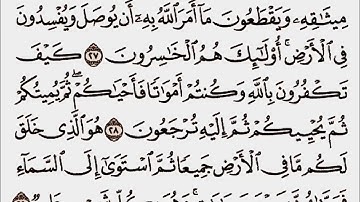 مِيثَٰقِهِۦ وَيَقْطَعُونَ مَآ أَمَرَ ٱللَّهُ بِهِۦٓ أَن يُوصَلَ وَيُفْسِدُونَ
فِي ٱلْأَرْضِ ۚ أُو۟لَٰٓئِكَ هُمُ ٱلْخَٰسِرُونَ ٢٧ كَيْفَ
تَكْفُرُونَ بِٱللَّهِ وَكُنتُمْ أَمْوَٰتًا فَأَحْيَٰكُمْ ۖ ثُمَّ يُمِيتُكُمْ
ثُمَّ يُحْيِيكُمْ ثُمَّ إِلَيْهِ تُرْجَعُونَ ٢٨ هُوَ ٱلَّذِي خَلَقَ
لَكُم مَّا فِي ٱلْأَرْضِ جَمِيعًا ثُمَّ ٱسْتَوَىٰٓ إِلَى ٱلسَّمَآءِ